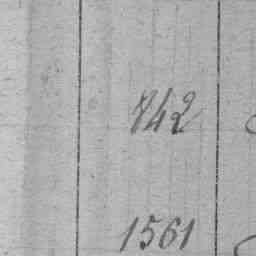 742
1561